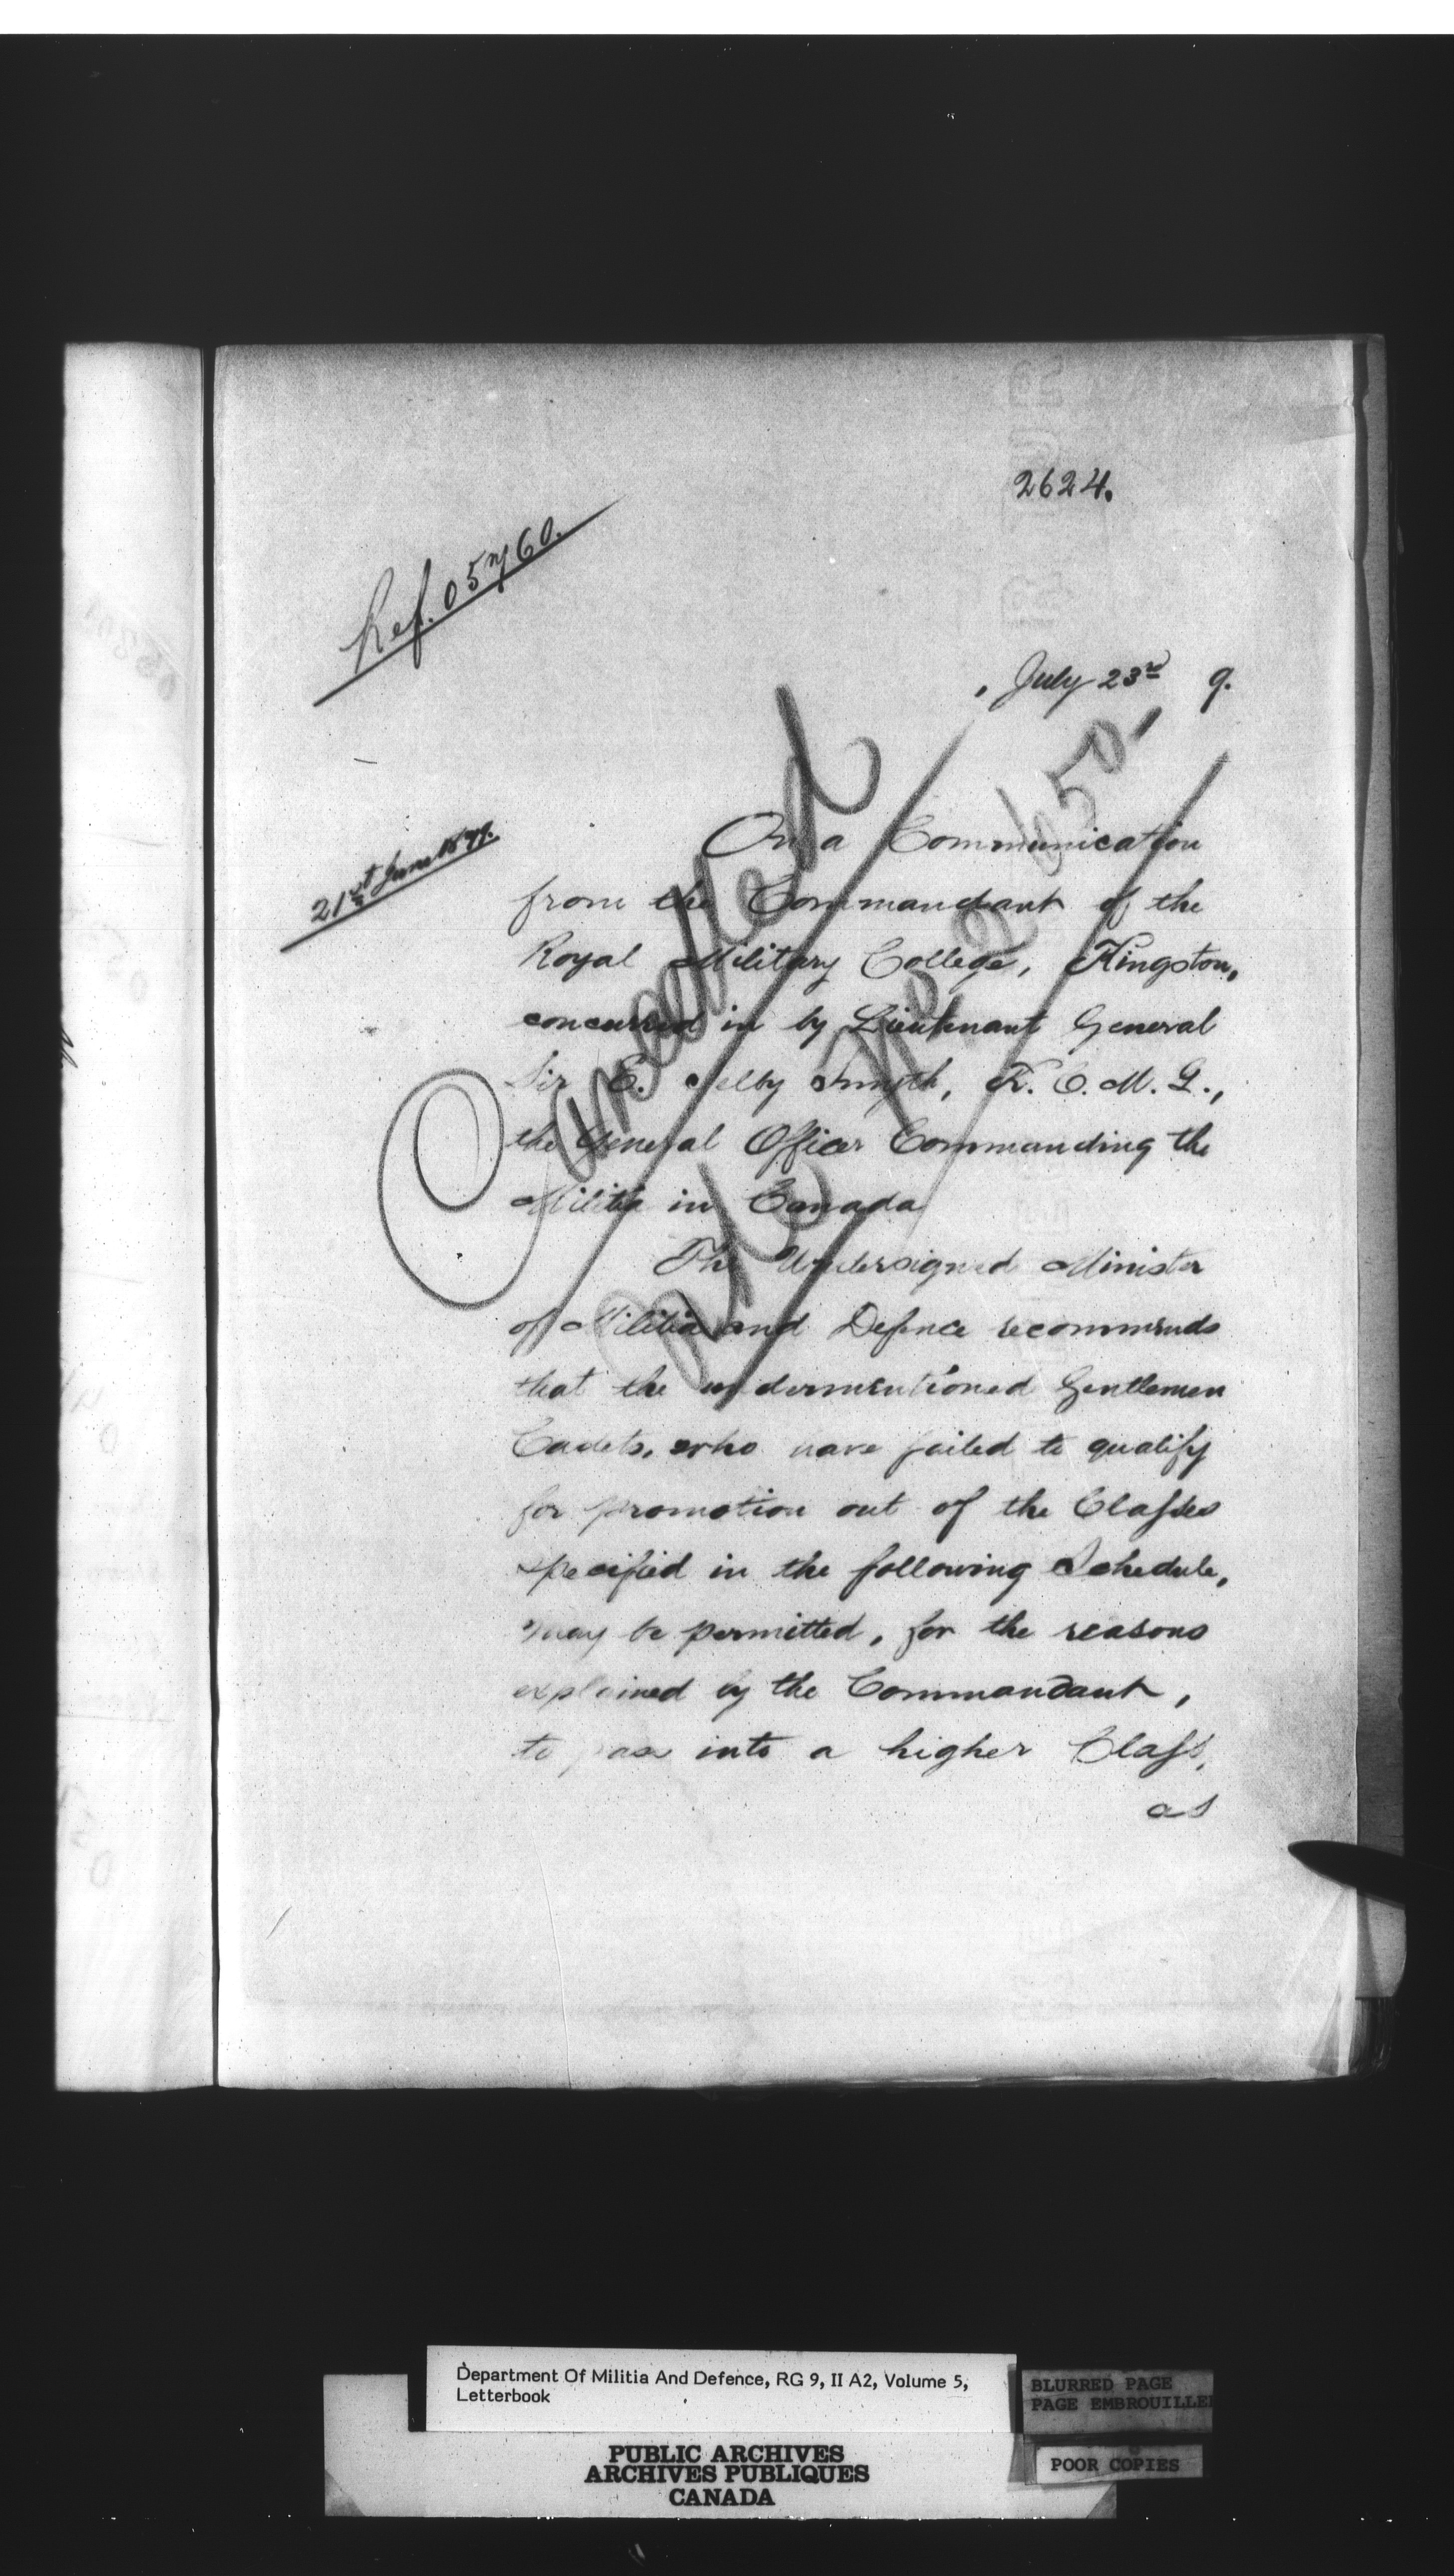 2624.
Ref. 05760.
July 23rd 9.
21st June 1879.
On a Communication
from the Commandant of the
Royal Military College, Kingston,
concurred in by Lieutenant General
Sir E. Selby Smyth, K.C.M.G.,
the General Officer Commanding the
Militia in Canada
The Undersigned Minister
of Militia and Defence recommends
that the undermentioned Gentlemen
Cadets, who have failed to qualify
for promotion out of the Classes
specified in the following Schedule,
may be permitted, for the reasons
explained by the Commandant,
to pass into a higher Class,
as
Cancelled
Department Of Militia And Defence, RG 9, II A2, Volume 5,
Letterbook
BLURRED PAGE
PAGE EMBROUILLE
POOR COPIES
PUBLIC ARCHIVES
ARCHIVES PUBLIQUES
CANADA